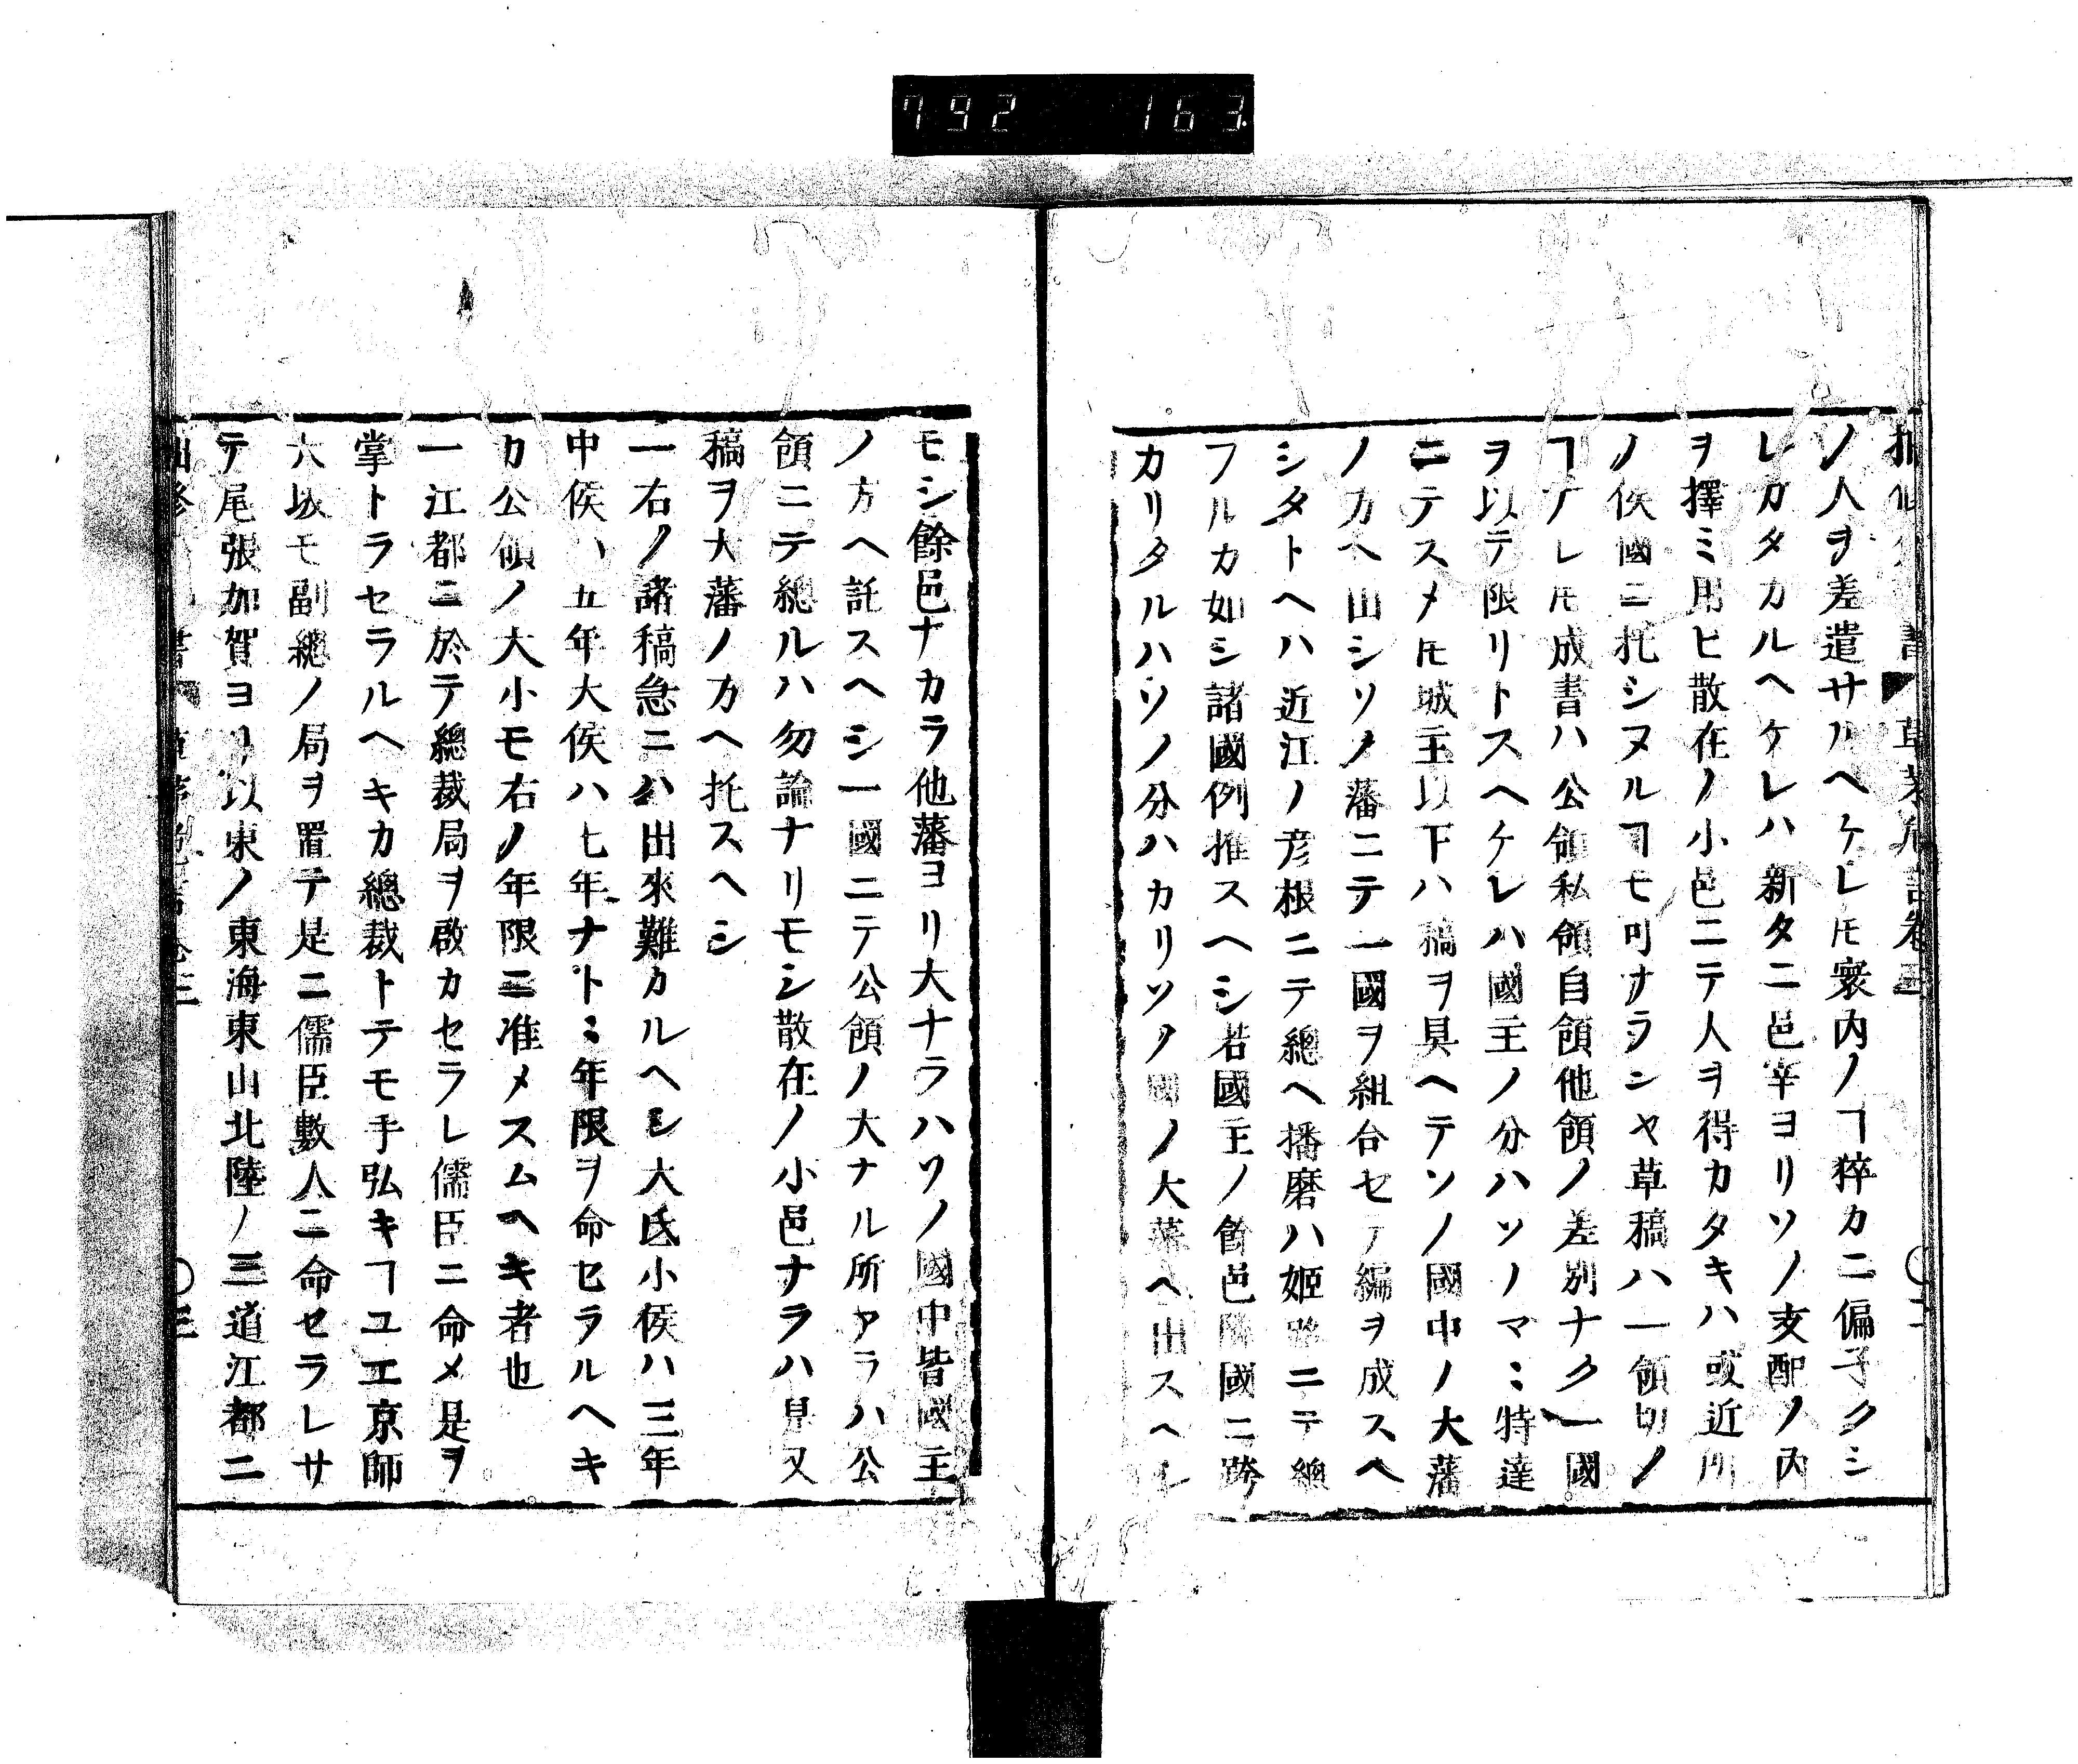 792 163
ノ人ヲ差遣サルヘケレ𪜈寰内ノヿ猝カニ偏子クシ
レカタカルヘケレハ新タニ邑宰ヨリソノ支配ノ内
ヲ擇ミ用ヒ散在ノ小邑ニテ人ヲ得カタキハ或近所
ノ侯國ニ托シヌルヿモ可ナランヤ草稿ハ一領切ノ
ヿナレ𪜈成書ハ公領私領自領他領ノ差別ナク一國
ヲ以テ限リトスヘケレハ國主ノ分ハソノマミ特達
ニテスメ𪜈城主以下ハ稿ヲ具ヘテソノ國中ノ大藩
ノカヘ出シソノ藩ニテ一國ヲ組合セテ編ヲ成スヘ
シタトヘハ近江ノ彦根ニテ總ヘ播磨ハ姫路ニテ總
フルカ如シ諸國例推スヘシ若國主ノ餘邑隣國ニ跨
カリタルハソノ分ハカリソノ國ノ大藩ヘ出スヘシ
モシ餘邑ナカラ他藩ヨリ大ナラハソノ國中皆國主
ノ方ヘ託スヘシ一國ニテ公領ノ大ナル所アラハ公
領ニテ總ルハ勿論ナリモシ散在ノ小邑ナラハ是又
稿ヲ大藩ノカヘ托スヘシ
一右ノ諸稿急ニハ出來難カルヘシ大氐小侯ハ三年
中侯ハ五年大侯ハ七年ナトミ年限ヲ命セラルヘキ
カ公領ノ大小モ右ノ年限ニ准メスムヘキ者也
一江都ニ於テ總裁局ヲ啟カセラレ儒臣ニ命メ是ヲ
掌トラセラルヘキカ總裁トテモ手弘キヿユエ京師
大坂モ副總ノ局ヲ置テ是ニ儒臣數人ニ命セラレサ
テ尾張加賀ヨリ以東ノ東海東山北陸ノ三道江都ニ